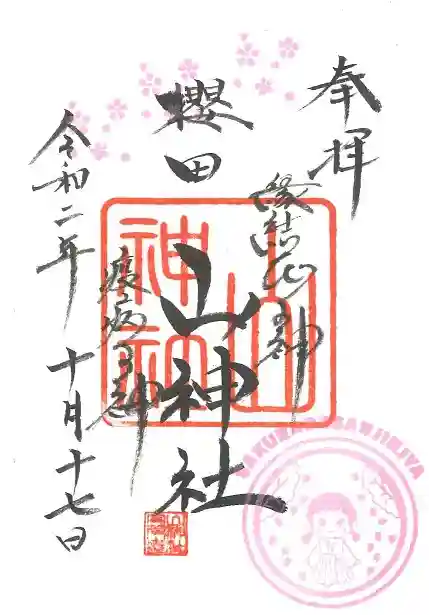 奉拝
縁結びの神
櫻田
山神社
疫病の神
令和二年
十月十七日
山神社
SAKURADA SANJINJYA